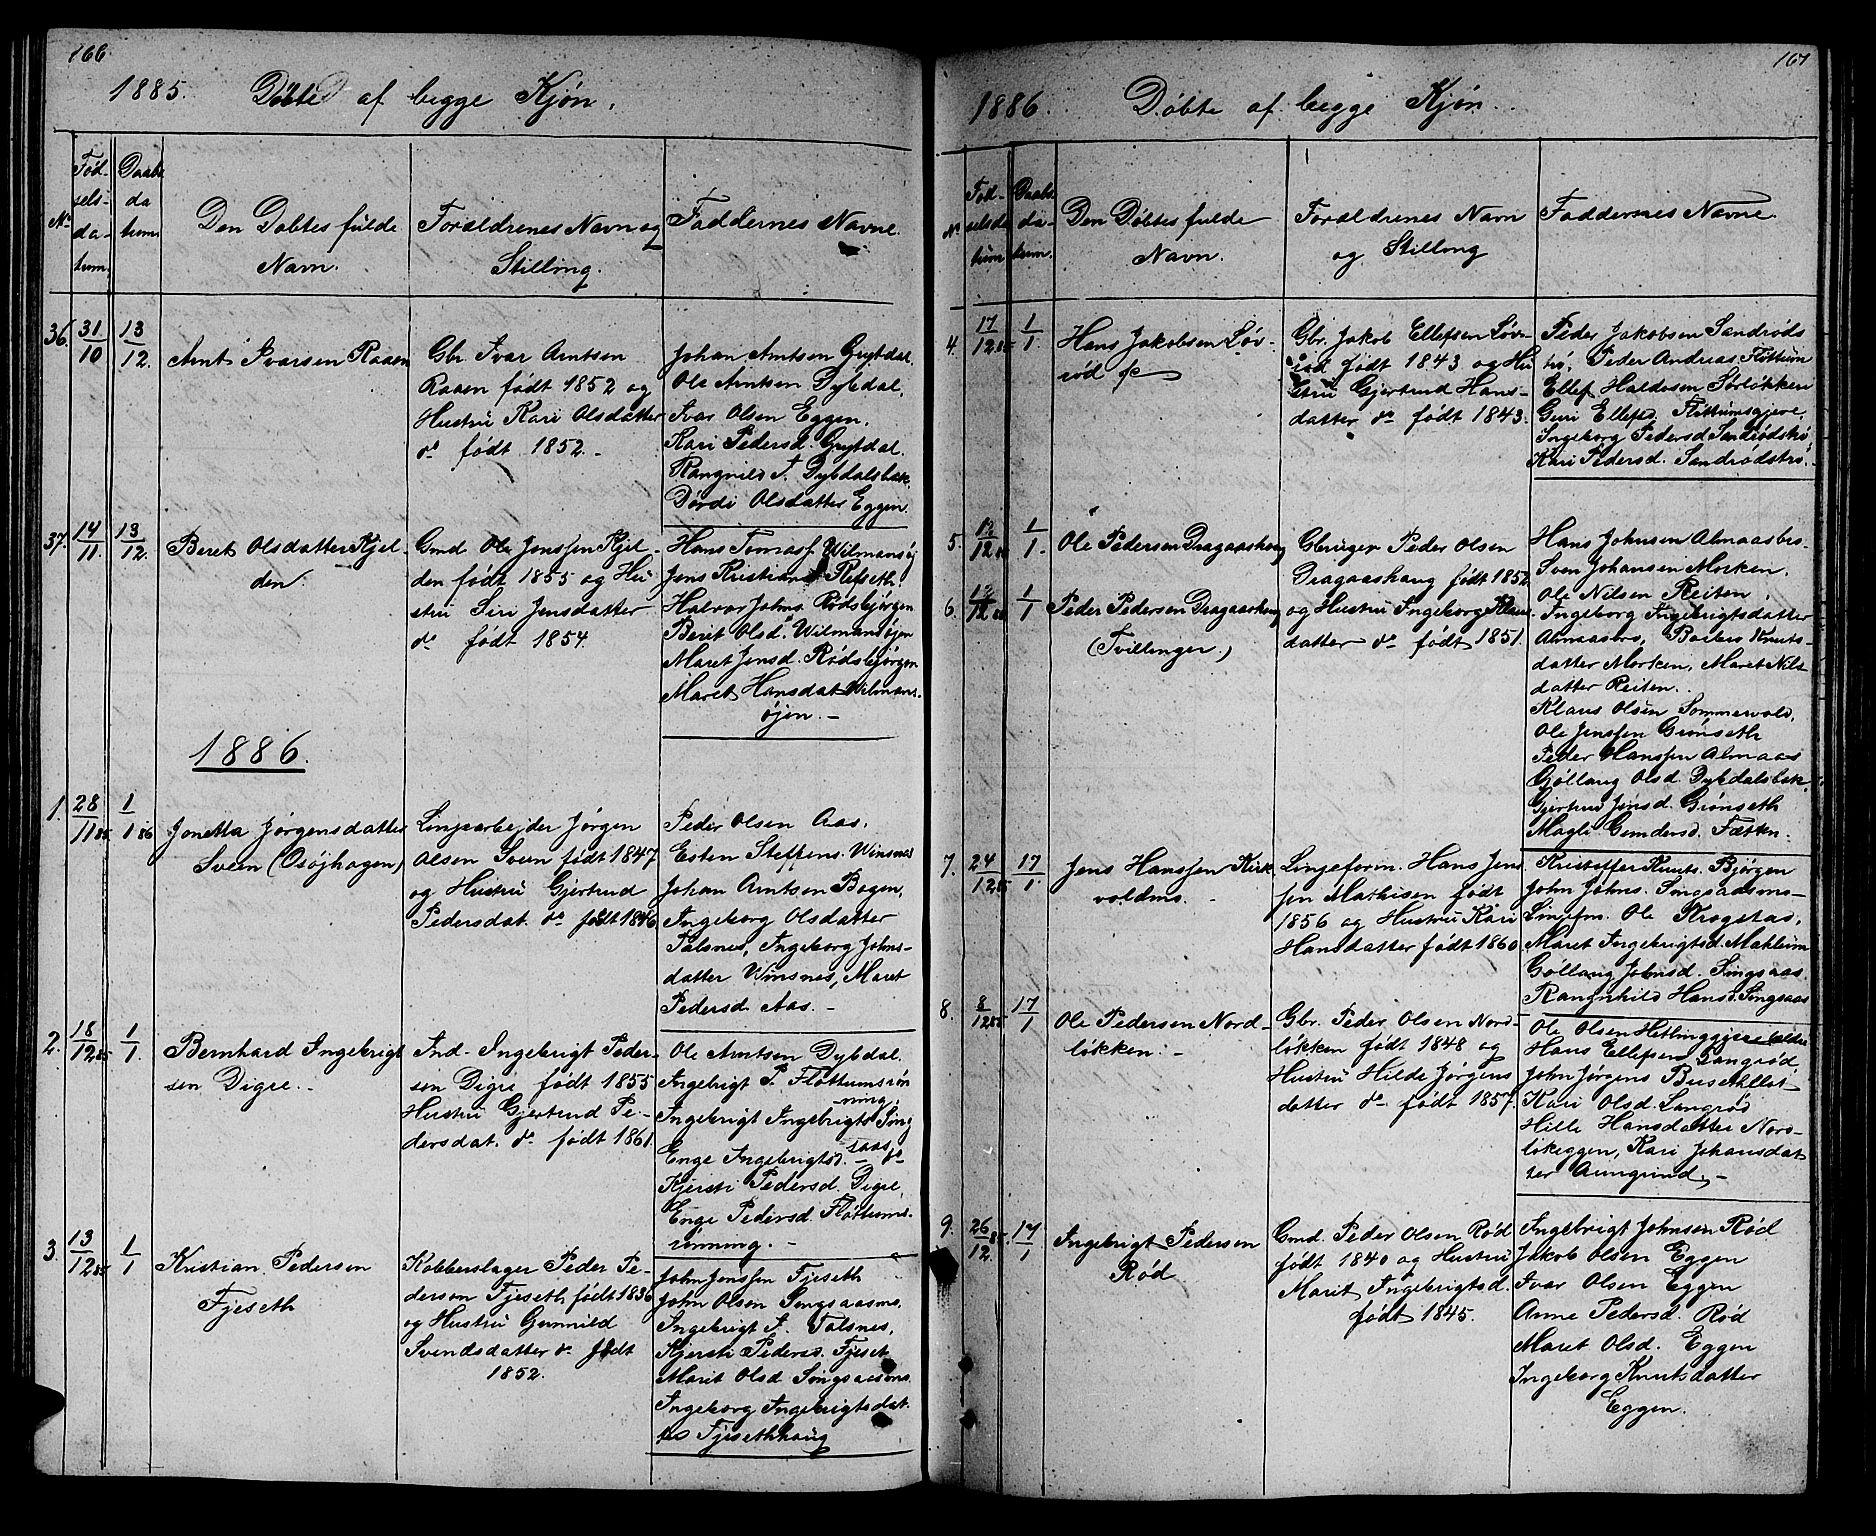 166
1885. Döbte af begge Kjøn.
No
Fød-
sels-
da-
tum.
Daabs
da
tum
Den Döbtes fulde
Navn.
Forældrenes Navn og
Stilling.
Faddernes Navne.
36. 31/10 13/12.
Arnt Ivarsen Raaen
Gbr Ivar Arntsen
Raaen født 1852 og
Hustru Kari Olsdatter
do født 1852.
Johan Arntsen Grytdal
Ole Arntsen Dybdal,
Ivar Olsen Eggen,
Kari Pedersd. Grytdal
Rangnild I. Dybdalsbak
Dørdi Olsdatter Eggen.
37. 14/11. 13/12.
Beret Olsdatter Kjel-
den.
Gmd Ole Jenssen Kjel-
den født 1855 og Hu
stru Siri Jensdatter
do født 1854.
Hans Tomasf. Wilmansøj
Jens Kristians Refseth
Halvor Johns. Rødsbjørgen
Berit Olsd. Wilmansøjen
Maret Jensd. Rødsbjørgen
Maret Hansdat Wilmans-
øjen. -
1886.
1. 28/11 85 1/1 86
Jonetta Jørgensdatter
Sveen (Osøjhagen)
Linjearbejder Jørgen
Olsen Sveen født 1847
og Hustru Gjertrud
Pedersdat. do født 1846
Peder Olsen Aas.
Esten Steffens. Winsnes
Johan Arntsen Bogen,
Ingeborg Olsdatter
Talsnes, Ingeborg Johns-
datter Winsnes, Maret
Pedersd Aas. -
2. 18/12 85 1/1.
Bernhard Ingebrigt
sen Digre. -
Ind. Ingebrigt Peder-
sen Digre født 1855
Hustru Gjertrud Pe-
dersdat. do født 1861.
Ole Arntsen Dybdal.
Ingebrigt P. Fløttumsrön
ning,
Ingebrigt Ingebrigts Sing
saas
Enge Ingebrigtsd. - do
Kjersti Pedersd. Digre,
Enge Pedersd. Fløttums-
rønning. -
3. 13/12 85 1/1
Kristian Pedersen
Fjeseth
Kobberslager Peder Pe-
dersen Fjeseth født 1836
og Hustru Gunnild
Svendsdatter do født
1852.
John Jenssen Fjeseth
John Olsen Singsaasmo,
Ingebrigt I. Talsnes,
Kjersti Pedersd. Fjeset
Marit Olsd Singsaasmo
Ingeborg Ingebrigtsdat
ter Fjesethhaug
167
1886. Döbte af begge Kjøn.
N.
Fød-
selsda
tum
Daabs
da-
tum.
Den Döbtes fulde
Navn.
Forældrenes Navn
og Stilling
Faddernes Navne.
4. 17/12 85 1/1
Hans Jakobsen Løv-
rød
Gbr. Jakob Ellefsen Løv-
rød født 1843 og Hu
stru Gjertrud Hans-
datter do født 1843.
Peder Jakobsen Sandrøds
trø, Peder Andreas. Fløttum
Ellef Haldosen Sørløkken
Guri Ellefsd. Fløttumsgjere,
Ingeborg Pedersd Sandrødstrø,
Kari Pedersd. Sandrødstrø.
5. 12/12 85 1/1.
Ole Pedersen Dragaashaug
Gbruger Peder Olsen
Dragaashaug født 1852
Hans Johnsen Almaasbro-
Sven Johansen Morken.
Ole Nilsen Reiten,
6. 12/12 85 1/1
Peder Pedersen Dragaashaug
(Tvillinger.)
og Hustru Ingeborg Klaus
datter do født 1851.
Ingeborg Ingebrigtsdatter
Almaasbro, Barbro Knuts-
datter Morken, Maret Nils
datter Reiten.
Klaus Olsen Sommervold,
Ole Jenssen Grönseth
Peder Hanssen Almaas
Gøllaug Olsd. Dybdalsbak,
Gjertrud Jensd. Grönseth
Magli Gundersd. Fætten.
7. 24/12 85 17/1.
Jens Hanssen Kirk
voldmo.
Linjeform. Hans Jens
sen Mathisen født
1856 og Hustru Kari
Hansdatter født 1860
Kristoffer Knuts. Bjørgen
John Johns. Singsaasmo-
Linjefm. Ole Krogstad,
Maret Ingebrigtsd. Mahlum
Gøllaug Johnsd. Singsaas
Rangnhild Hansd. Singsaas
8. 8/12 85. 17/1
Ole Pedersen Nord-
løkken. -
Gbr. Peder Olsen Nord-
løkken født 1848 og
Hustru Hilde Jørgens
datter do født 1857.
Hans Ellefsen Langrød,
John Jørgens Busethllet
Kari Olsd. Langrød
Hille Hansdatter Nord-
løkeggen, Kari Johansdat
ter Aungrind, -
9. 26/12 85. 17/1
Ingebrigt Pedersen
Rød
Gmd. Peder Olsen Rød
født 1840 og Hustru
Marit Ingebrigtsd.
født 1845.
Ingebrigt Johnsen Rød
Jakob Olsen Eggen
Ivar Olsen Eggen
Anne Pedersd. Rød
Maret Olsd. Eggen
Ingeborg Knutsdatter
Eggen.